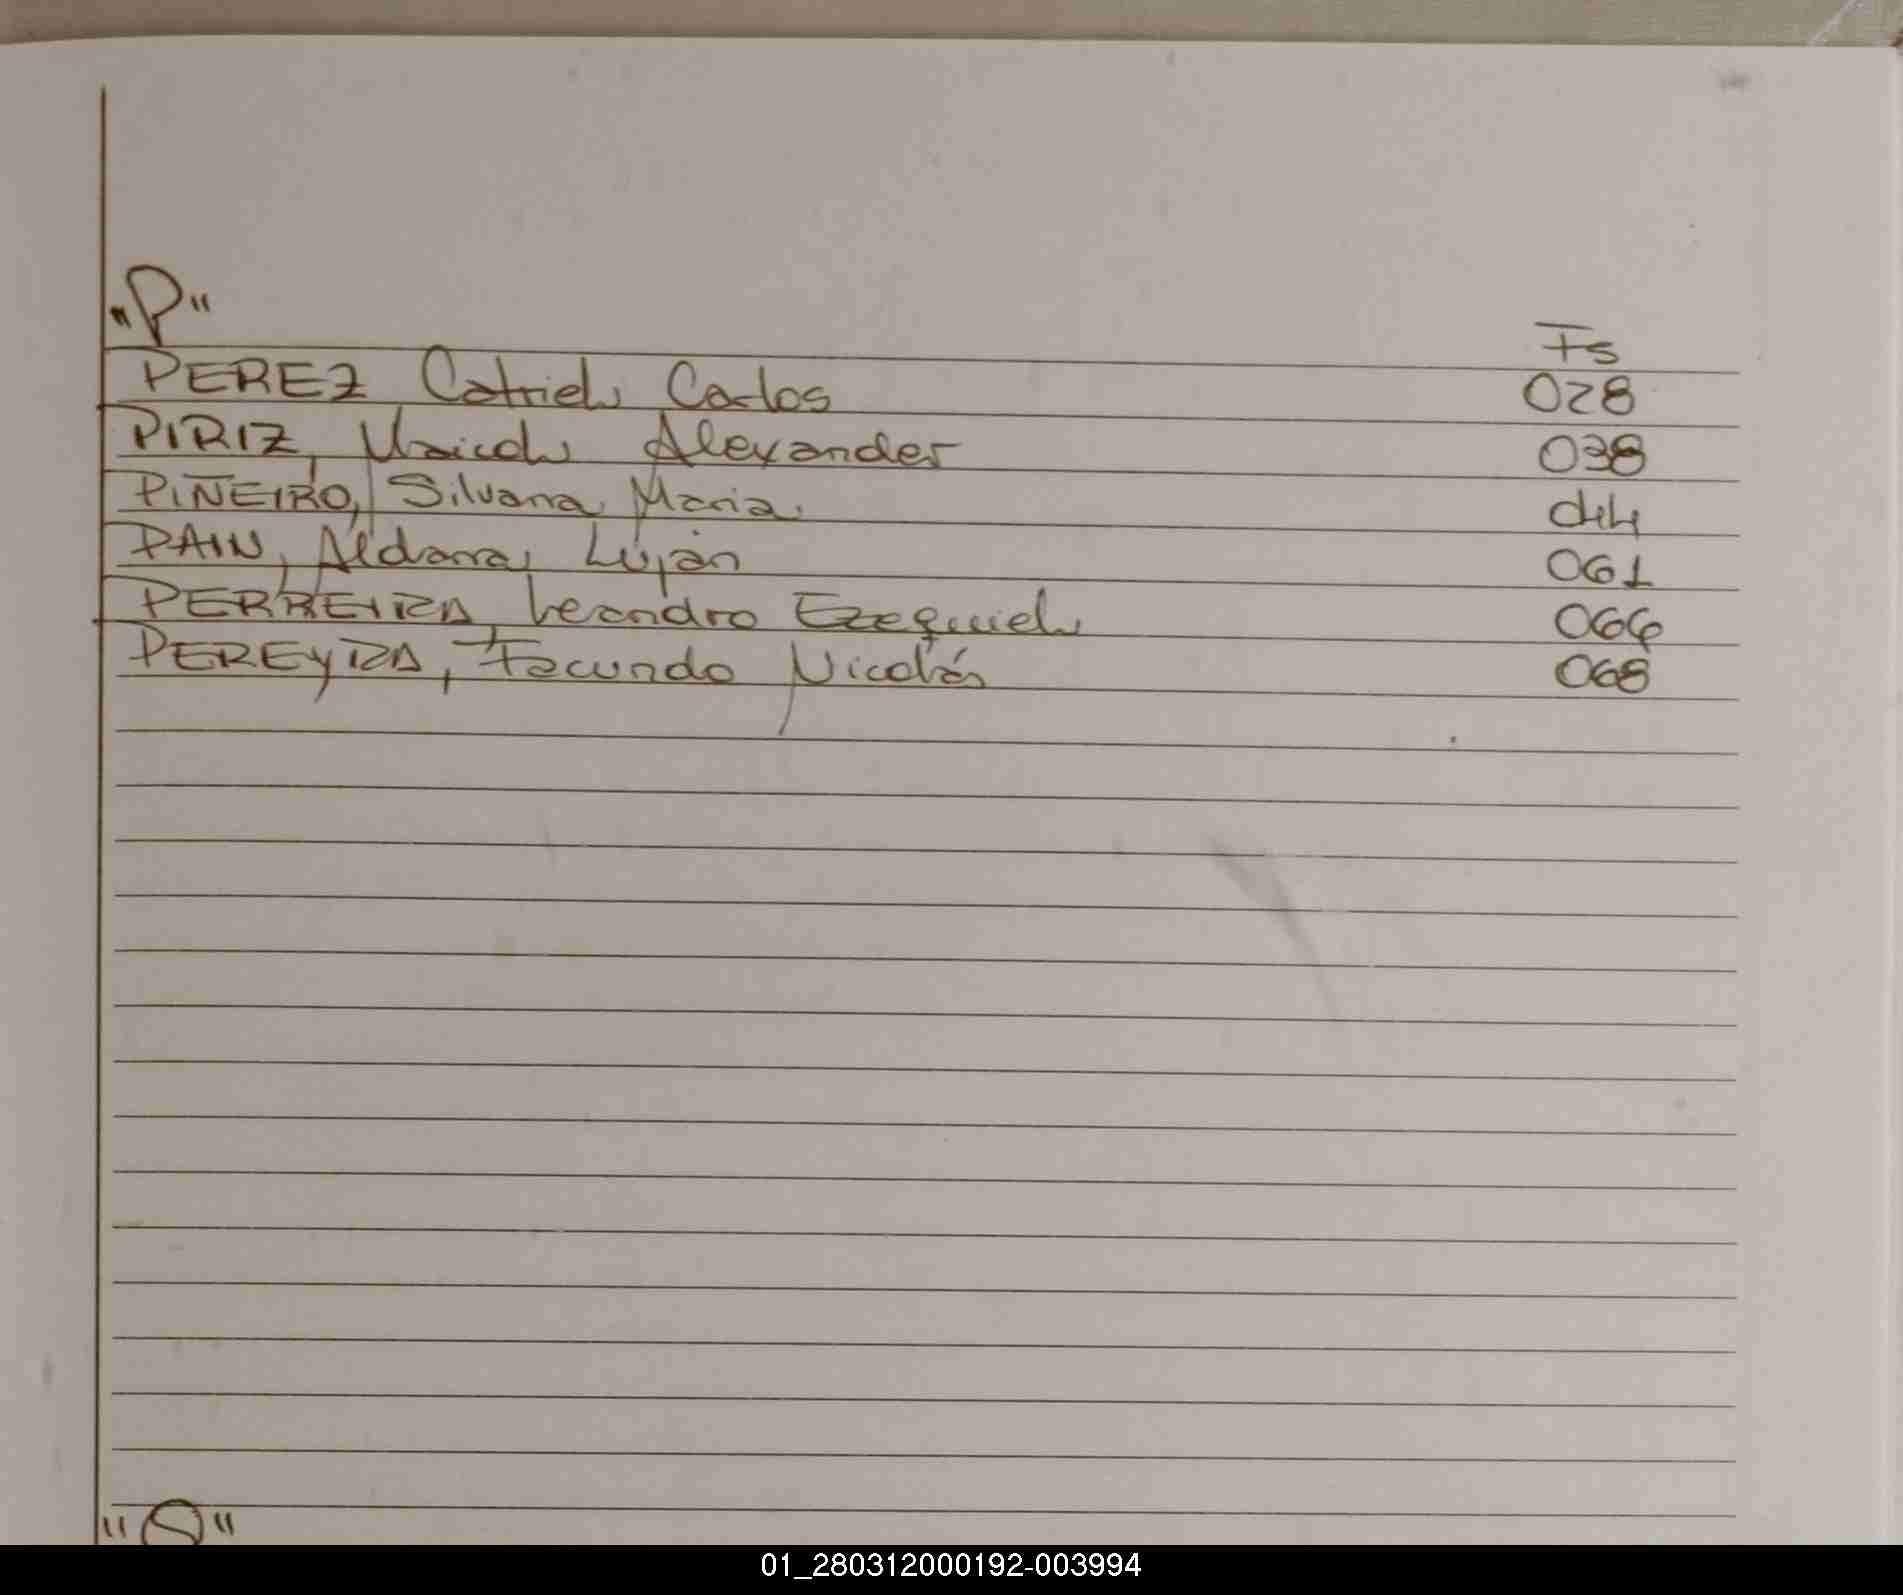 "P"
Fs
PEREZ Catriel Carlos 028
PIRIZ, Maicol Alexander 038
PIÑEIRO, Silvana Maria 044
PAIN, Aldana Luján 061
PERREIRA, Leandro Ezequiel 066
PEREYRA, Facundo Nicolás 068
"Q"
01_280312000192-003994